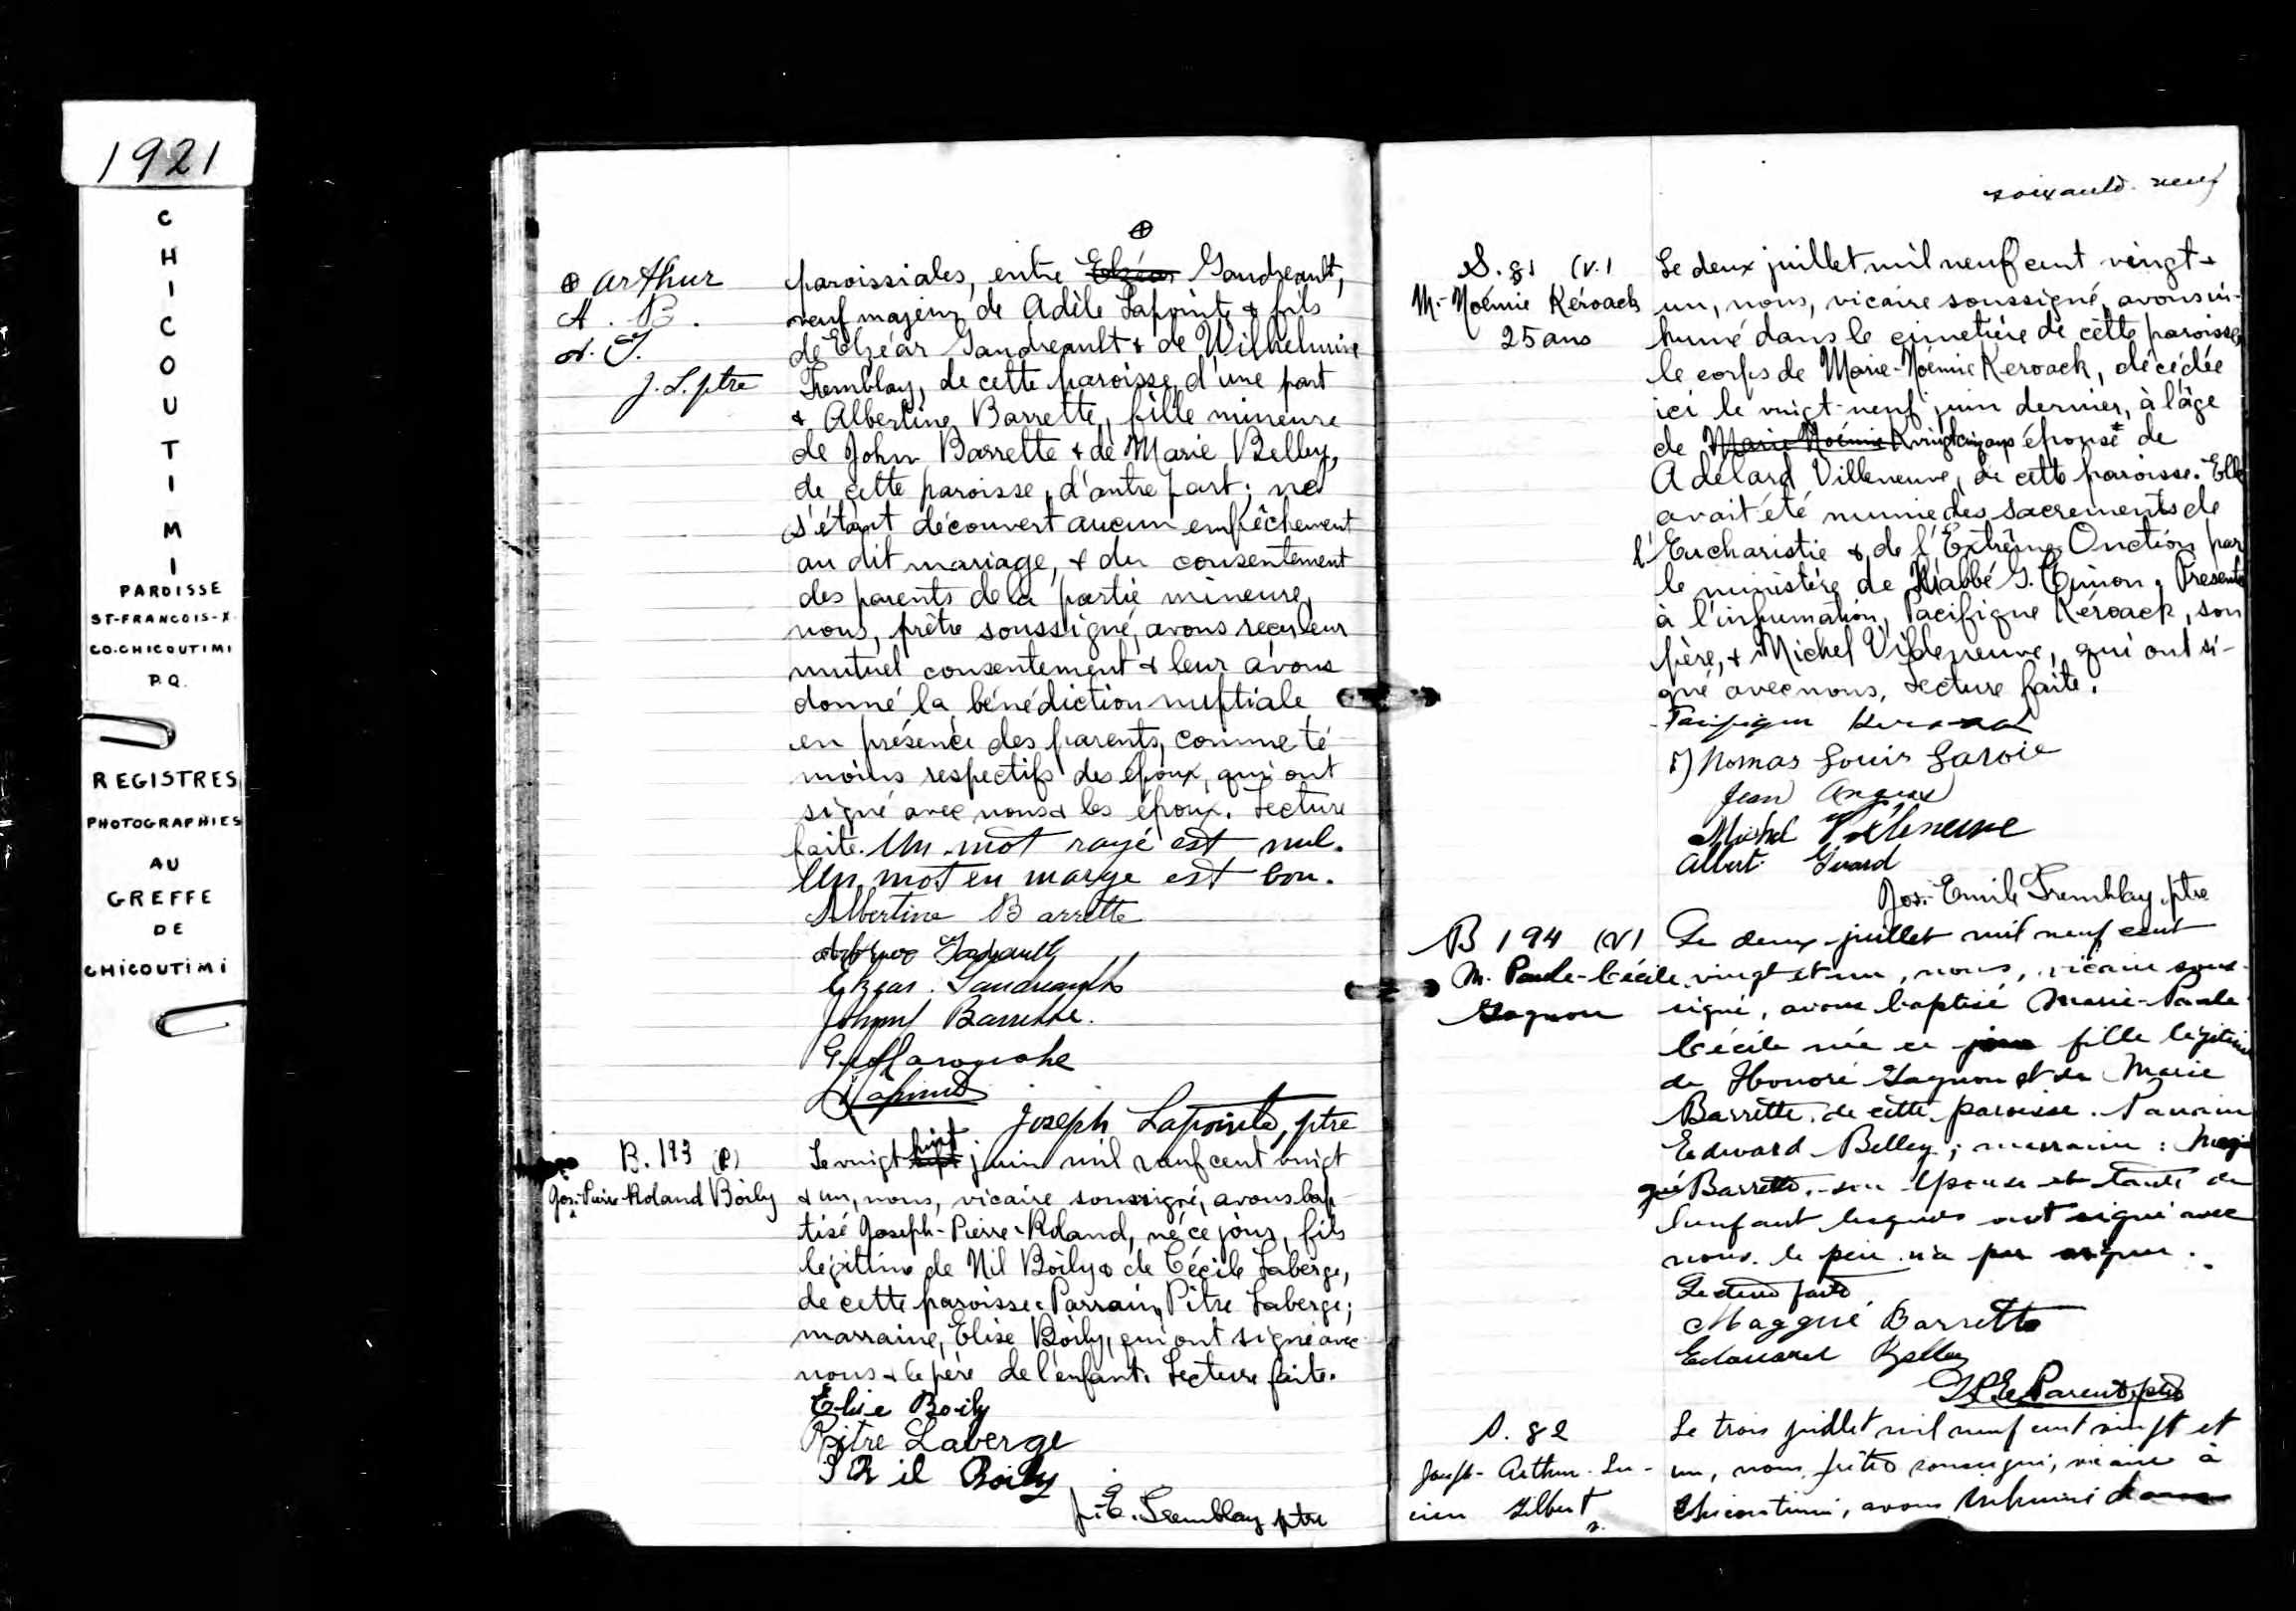 1921
CHICOUTIMI
PAROISSE
ST-FRANCOIS-X
CO.CHICOUTIMI
P.Q.
REGISTRES
PHOTOGRAPHIES
AU
GREFFE
DE
CHICOUTIMI
⊕
⊕ Arthur
A. B.
A. G.
J. L. ptre
paroissiales, entre Elzéar Gaudreault,
veuf majeur de Adèle Lapointe & fils
de Elzéar Gaudreault & de Wilhelmine
Tremblay, de cette paroisse, d'une part
& Albertine Barrette, fille mineure
de John Barrette & de Marie Belley,
de cette paroisse, d'autre part; ne
s'étant découvert aucun empêchement
au dit mariage, & du consentement
des parents de la partie mineure,
nous, prêtre soussigné, avons reçu leur
mutuel consentement & leur avons
donné la bénédiction nuptiale
en présence des parents, comme té
moins respectifs des époux, qui ont
signé avec nous & les époux. Lecture
faite. Un mot rayé est nul.
Un mot en marge est bon.
Albertine Barrette
Elzear Gaudreault
Johnny Barrette.
Joseph Lapointe, ptre
B. 193 (P)
Jos.-Pierre-Roland Boily
Le vingt sept huit juin mil neuf cent vingt
& un, nous, vicaire soussigné, avons bap-
tisé Joseph-Pierre-Roland, né ce jour, fils
légitime de Nil Boily & de Cécile Laberge,
de cette paroisse. Parrain, Pitre Laberge;
marraine, Elise Boily, qui ont signé avec
nous & le père de l'enfant. Lecture faite.
Elise Boily
Pitre Laberge
Nil Boily
J.-E. Tremblay ptre
soixante-neuf
S. 81 (V.)
M.-Noémie Kéroack
25 ans
Le deux juillet mil neuf cent vingt &
un, nous, vicaire soussigné, avons in-
humé dans le cimetière de cette paroisse,
le corps de Marie-Noémie Keroack, décédée
ici le vingt-neuf juin dernier, à l'âge
de Marie Noémie K vingt cinq ans épouse de
Adélard Villeneuve, de cette paroisse. Elle
avait été munie des sacrements de
l'Eucharistie & de l'Extrême Onction par
le ministère de l'abbé G. Présents
à l'inhumation, Pacifique Kéroack, son
père, & Michel Villeneuve, qui ont si-
gné avec nous, Lecture faite.
Pacifique Keroack
Thomas Louis Savoie
Jean
Michel Villeneuve
Albert Girard
Jos.-Emile Tremblay, ptre
B 194 (V)
M. Paule-Cécile
Gagnon
Le deux juillet mil neuf cent
vingt et un, nous, vicaire sous-
signé, avons baptisé Marie-Paule
Cécile née ce jour fille légitime
de Honoré Gagnon et de Marie
Barrette de cette paroisse. Parrain
Edward Belley; marraine: Mag
gué Barrette, son épouse et tante de
l'enfant lesquels ont signé avec
nous. le père n'a pu signer.
Lecture faite
Maggué Barrette
Edouard Belley
Parent, ptre
S. 82
Joseph-Arthur-Lu-
cien Gilbert
Le trois juillet mil neuf cent vingt et
un, nous, prêtre soussigné, vicaire à
Chicoutimi, avons inhumé dans